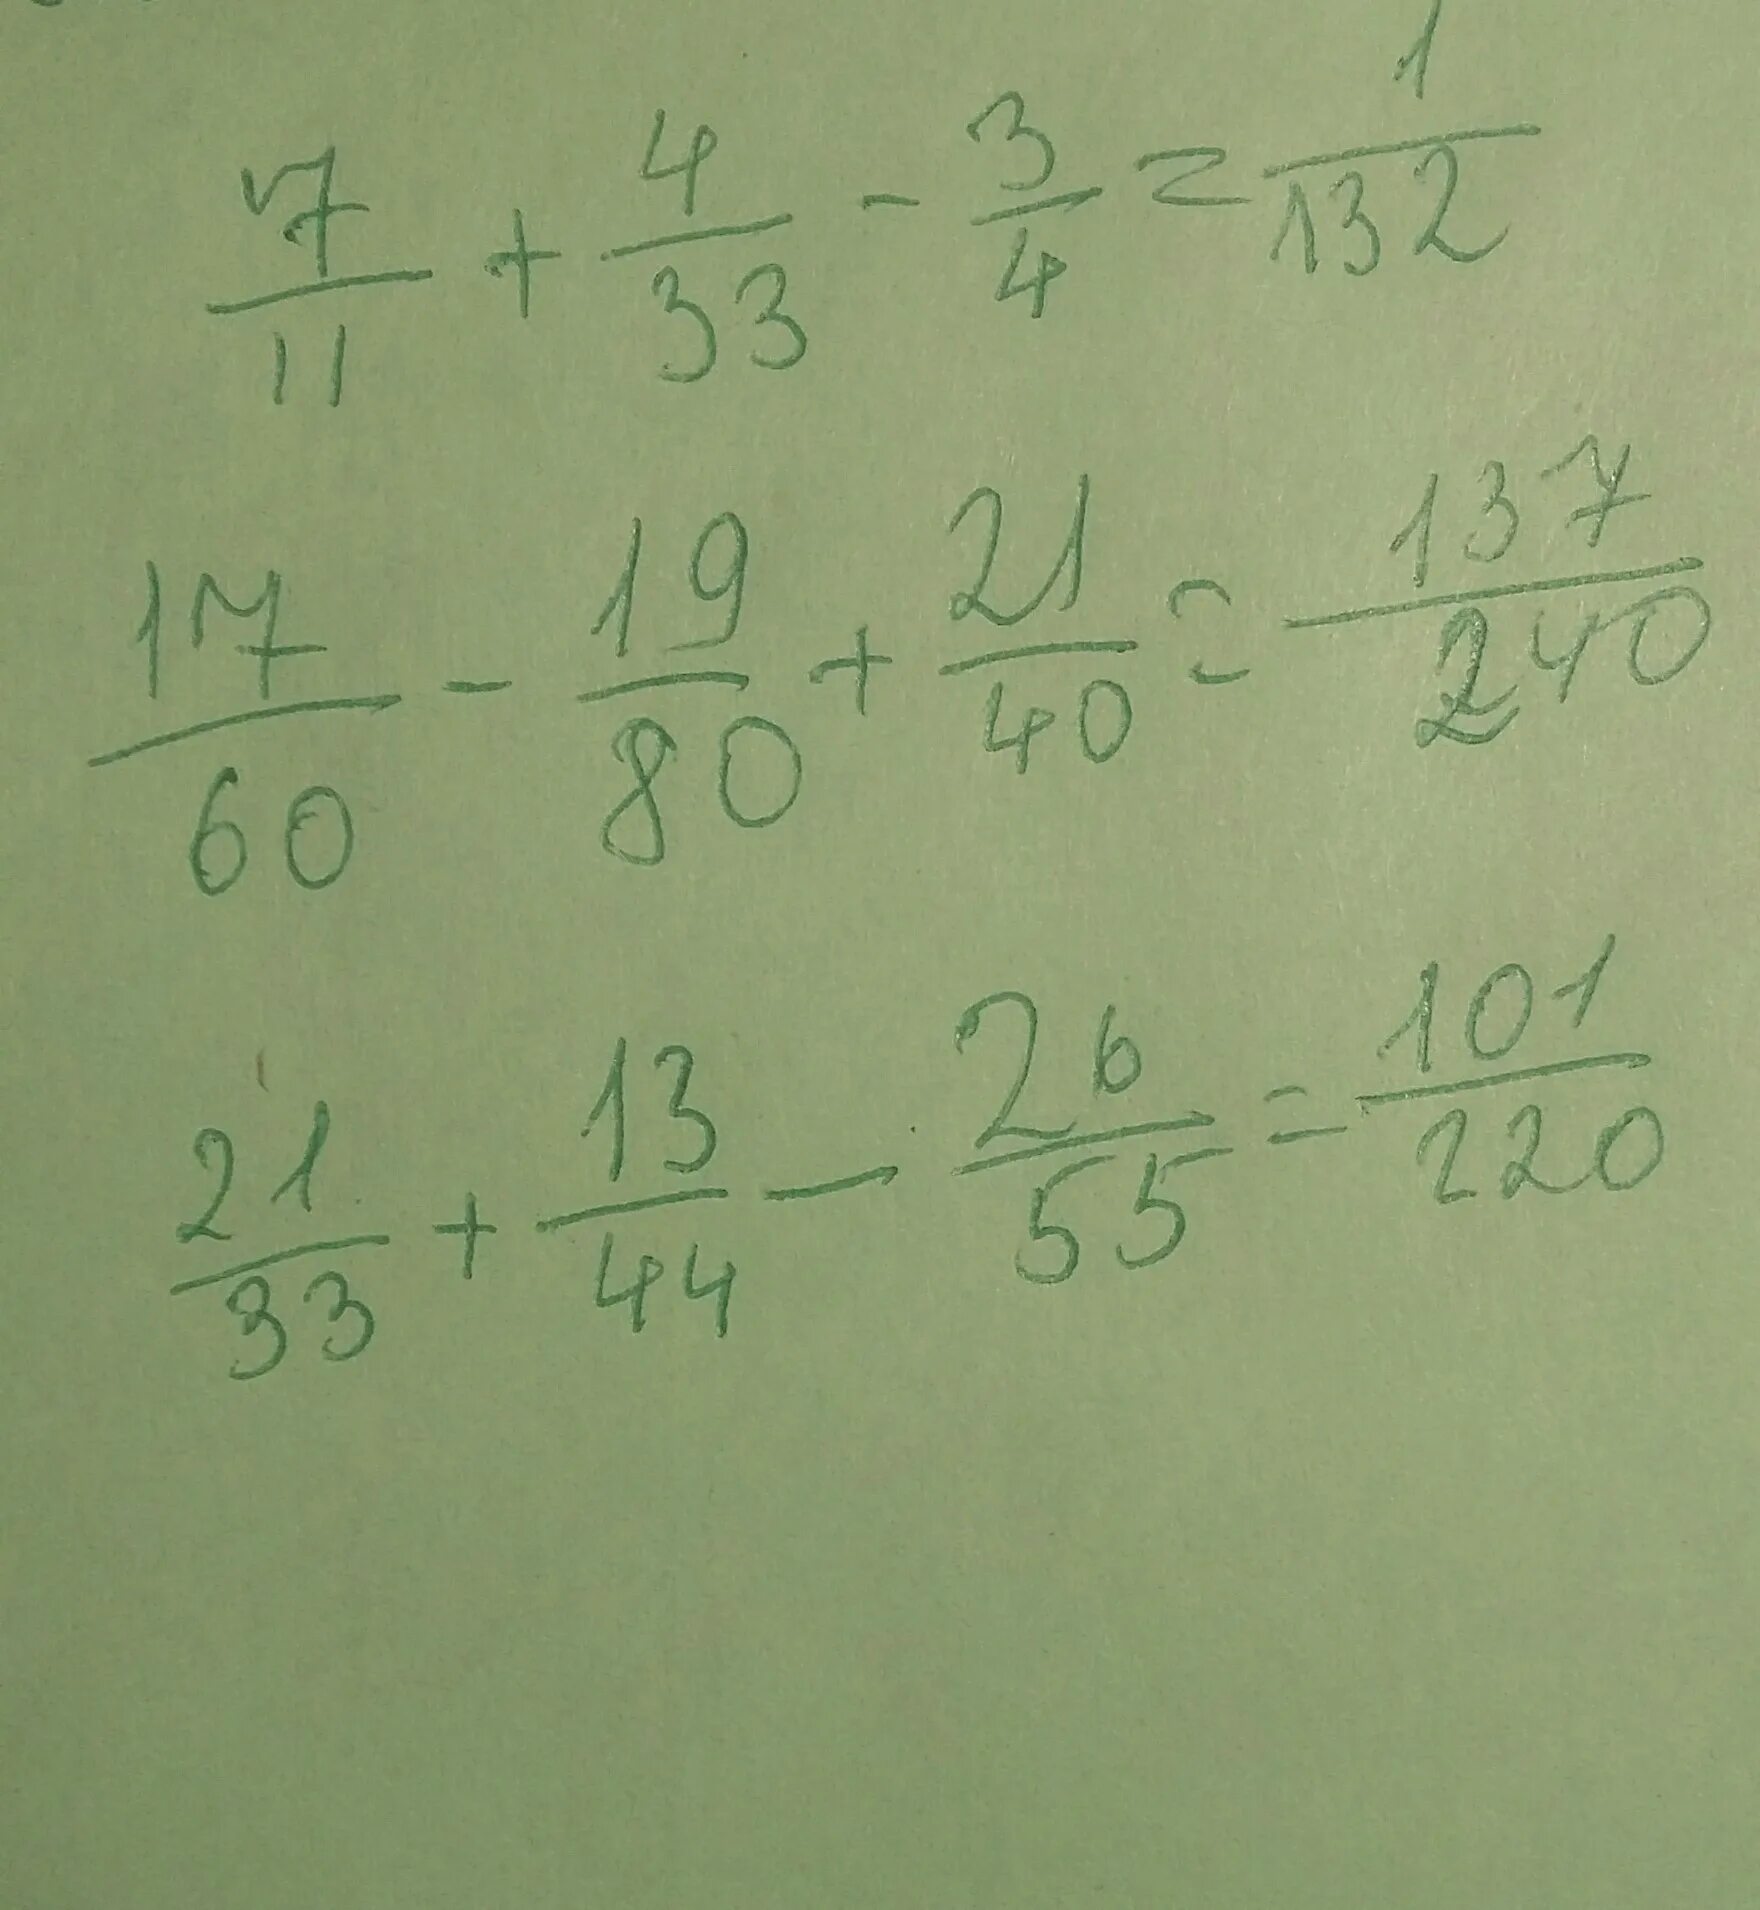 7/11 + 4/33 - 3/4 = 1/132
17/60 - 19/80 + 21/40 = 137/240
21/33 + 13/44 - 26/55 = 101/220